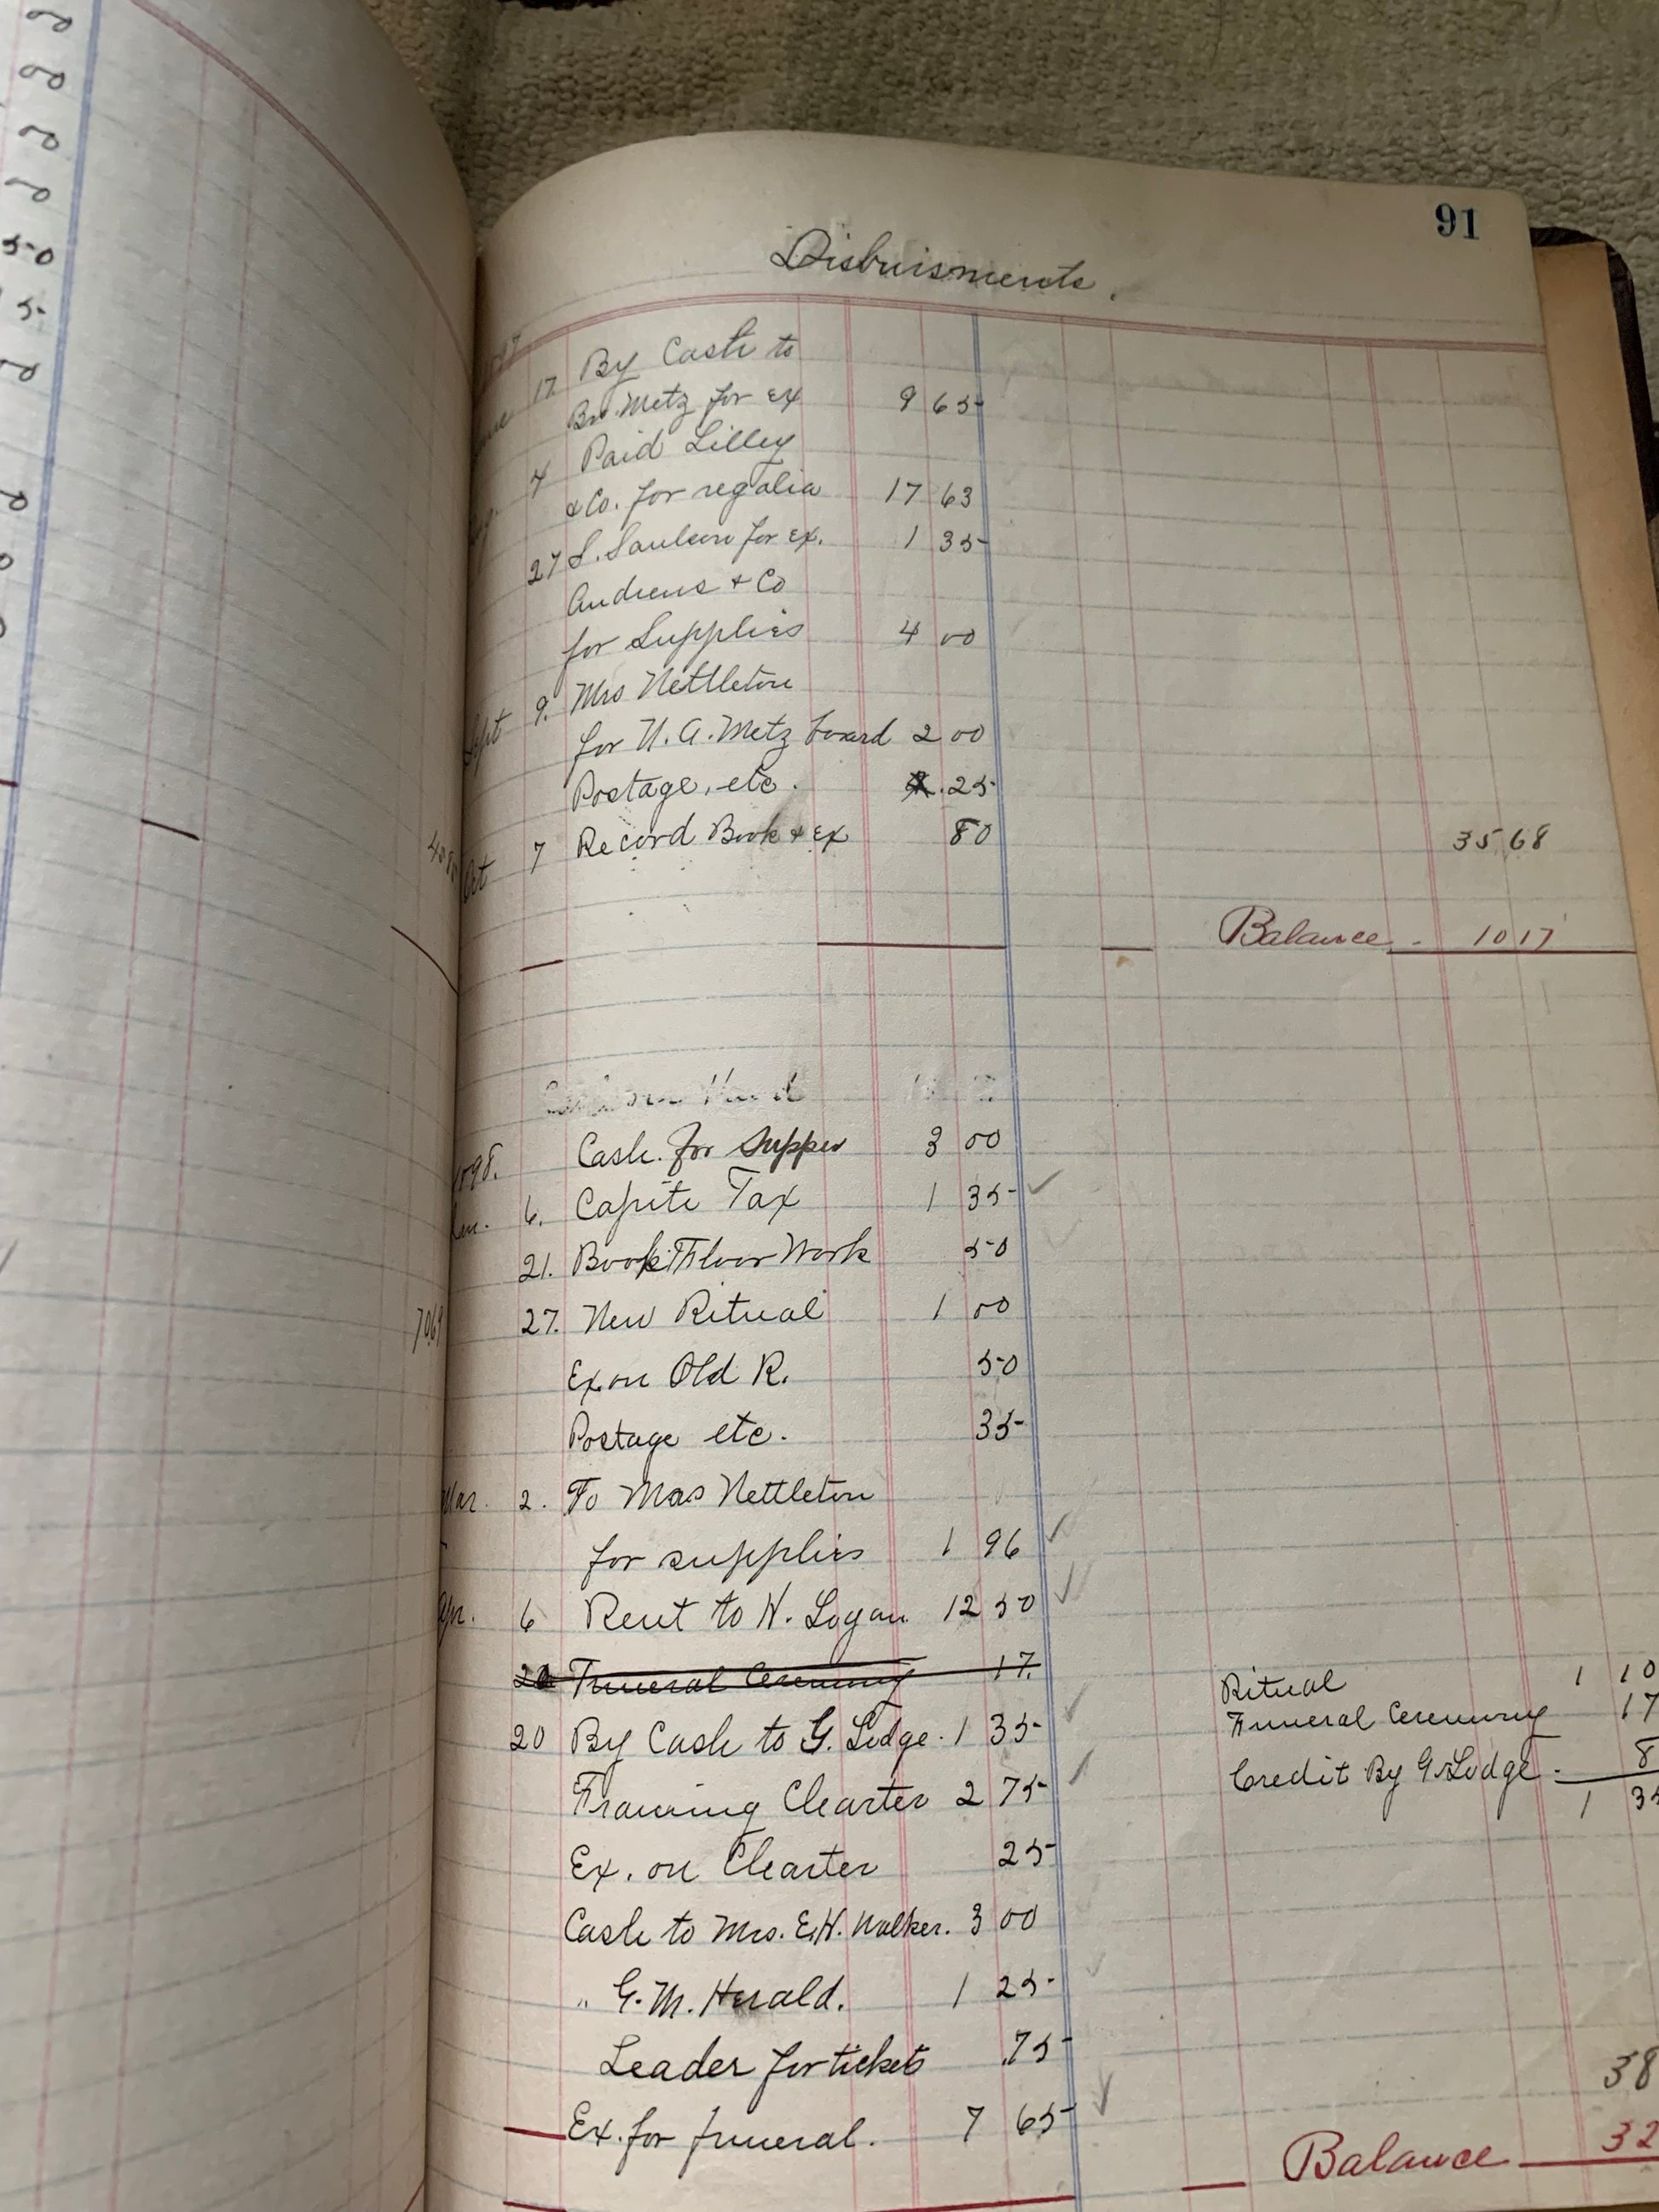 91
Disbuisments.
17. By Cash to
Bro. Metz for ex 9 65
4 Paid Lilley
& Co. for regalia 17 63
27 S. for ex. 1 35
Andrews & Co
for Supplies 4 00
Sept 9. Mrs Nettleton
for N. A. Metz board 2 00
Postage, etc. .25
Oct 7 Record Book & ex 80
35 68
Balance 10 17
1898. Cash for supper 3 00
Jan. 6. Capite Tax 1 35 ✓
21. Book Floor Work 50
27. New Ritual 1 00
Ex on Old R. 50
Postage etc. 35
Mar. 2. To Mrs Nettleton
for supplies 1 96 ✓
Apr. 6 Rent to H. Logan 12 50 ✓
20 Funeral Ceremony 17.
20 By Cash to G. Lodge. 1 35 ✓
Framing Charter 2 75 ✓
Ex. on Charter 25
Cash to Mrs. E.H. Walker. 3 00
" G. M. Herald. 1 25 ✓
Leader for tickets .75
Ex. for funeral. 7 65 ✓
Ritual 1 10
Funeral Ceremony 17
Credit By G. Lodge. 8
1 35
38
Balance 32